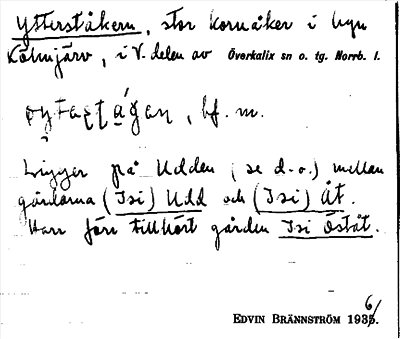 Ytterståkern, stor kornåker i byn
Kölmjärv, i V. delen av Överkalix sn o. tg. Norrb. l.
bf. m.
Ligger på Udden (se d. o.) mellan
gårdarna (Isi) Udd och (Isi) Åt.
Har förr tillhört gården Isi Öståt.
EDVIN BRÄNNSTRÖM 1936.